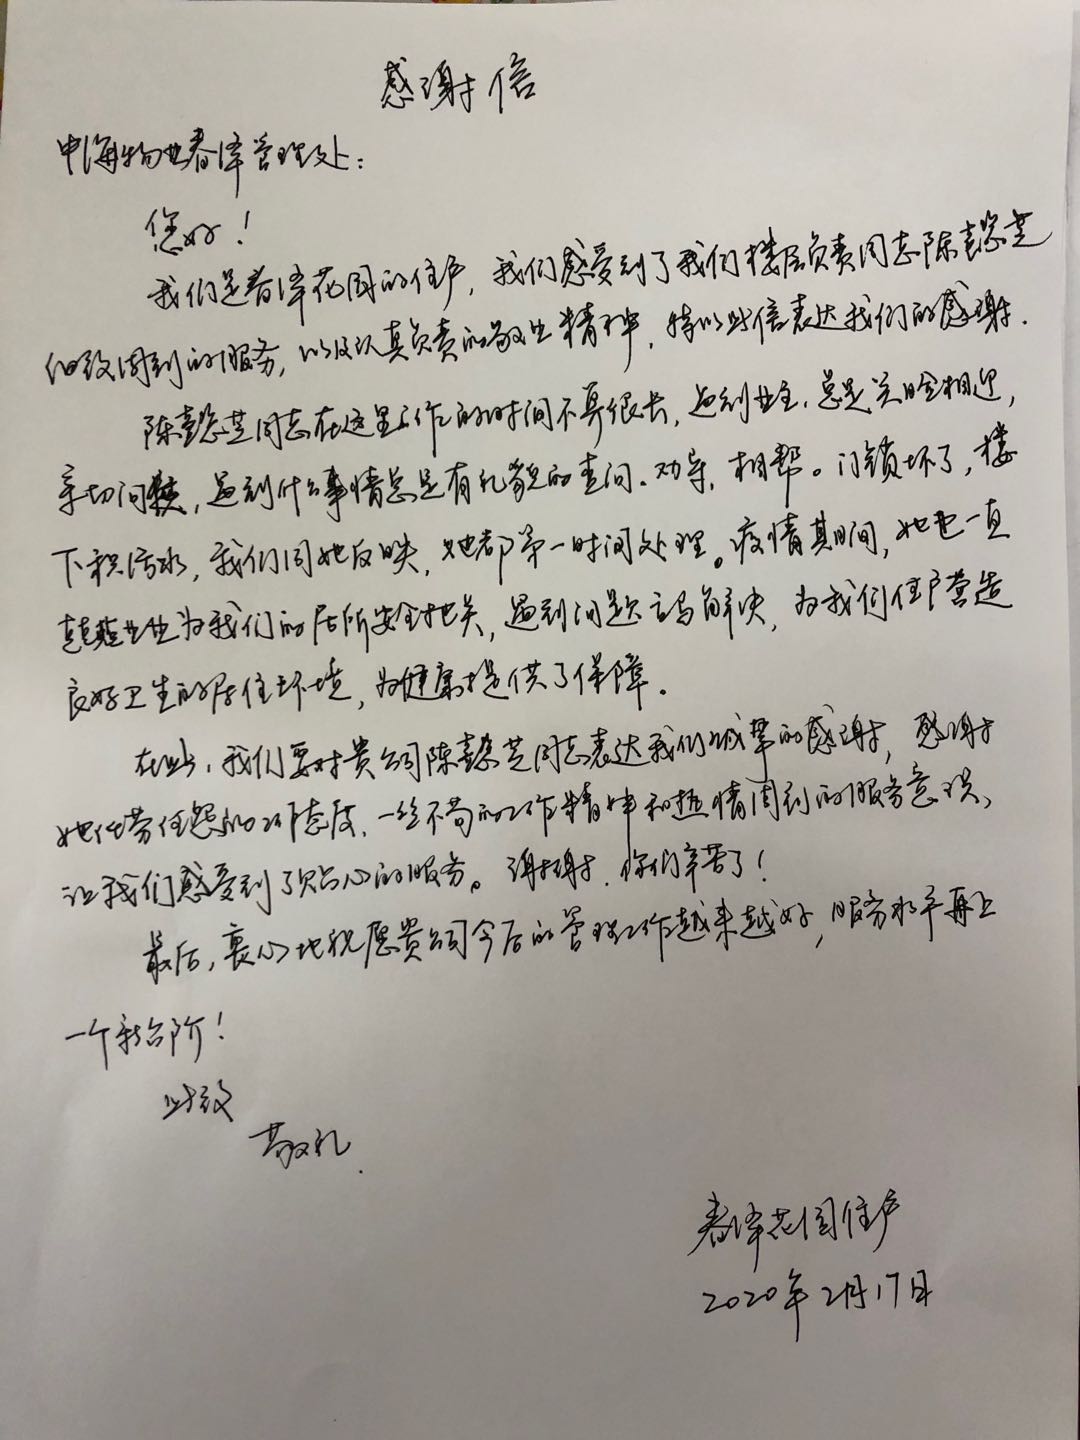 感谢信
中海物业春泽管理处：
您好！
我们是春泽花园的住户，我们感受到了我们楼层负责同志陈懿芝
细致周到的服务，以及认真负责的敬业精神，特以此信表达我们的感谢．
陈懿芝同志在这里工作的时间不算很长，遇到业主，总是笑脸相迎，
亲切问候，遇到什么事情总是有礼貌的查问、劝导、相帮。门锁坏了，楼
下积污水，我们同她反映，她都第一时间处理。疫情其期间，她也一直
兢兢业业为我们的居所安全把关，遇到问题立马解决，为我们住户营造
良好卫生的居住环境，为健康提供了保障。
在此，我们要对贵公司陈懿芝同志表达我们诚挚的感谢，感谢
她任劳任怨的工作态度，一丝不苟的工作精神和热情周到的服务意识，
让我们感受到了贴心的服务。谢谢，你们辛苦了！
最后，衷心地祝愿贵公司今后的管理工作越来越好，服务水平再上
一个新台阶！
此致
敬礼
春泽花园住户
2020年2月17日